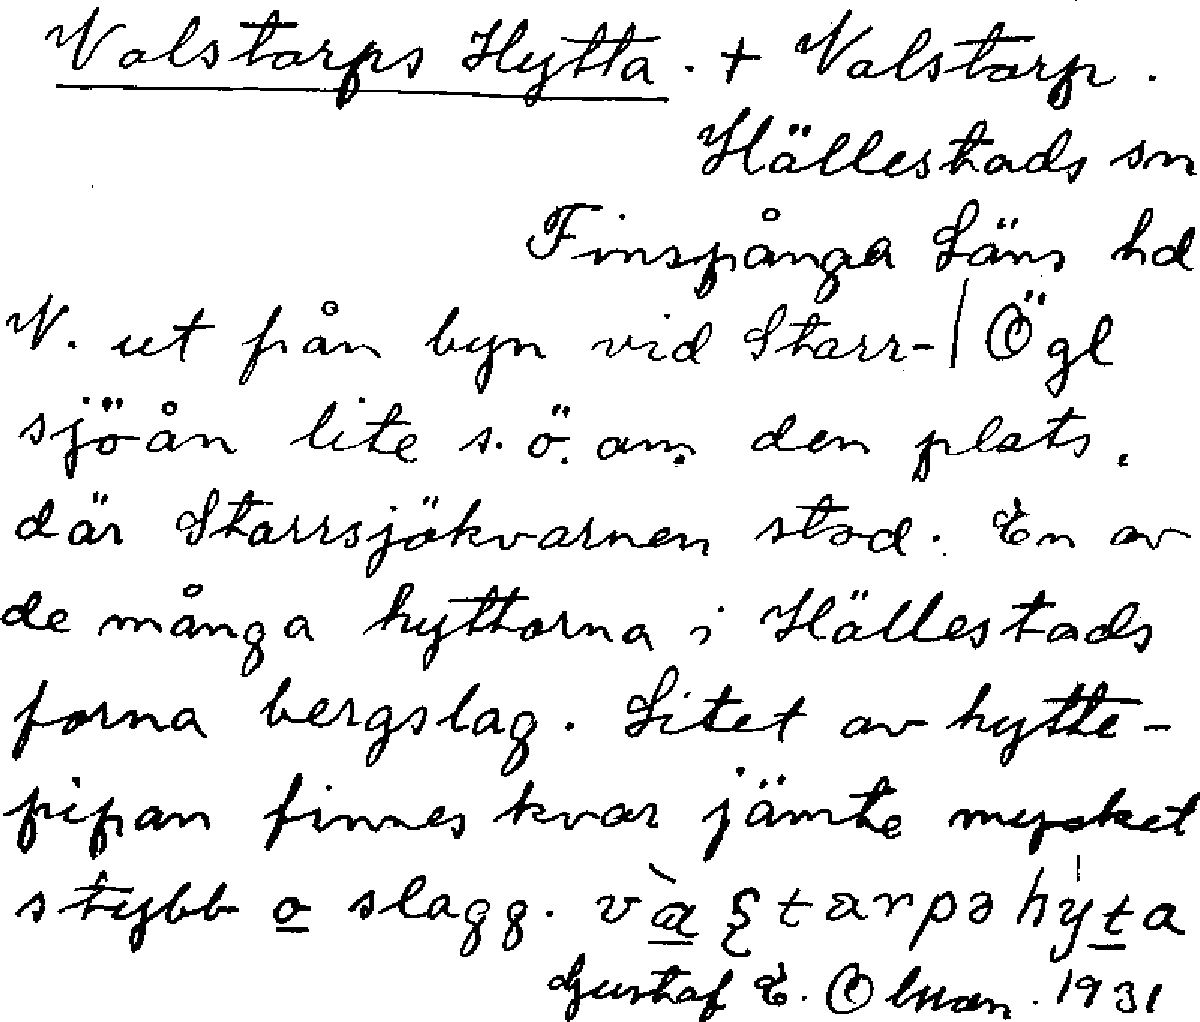 Valstorps Hytta. + Valstorp.
Hällestads sn
Finspånga Läns hd
V. ut från byn vid Starr-| Ögl
sjöån lite s.ö. om den plats.
där Starrsjökvarnen stod. En av
de många hyttorna i Hällestads
forna bergslag. Litet av hytte-
pipan finnes kvar jämte mycket
stybb o slagg.
Gustaf E. Olman. 1931